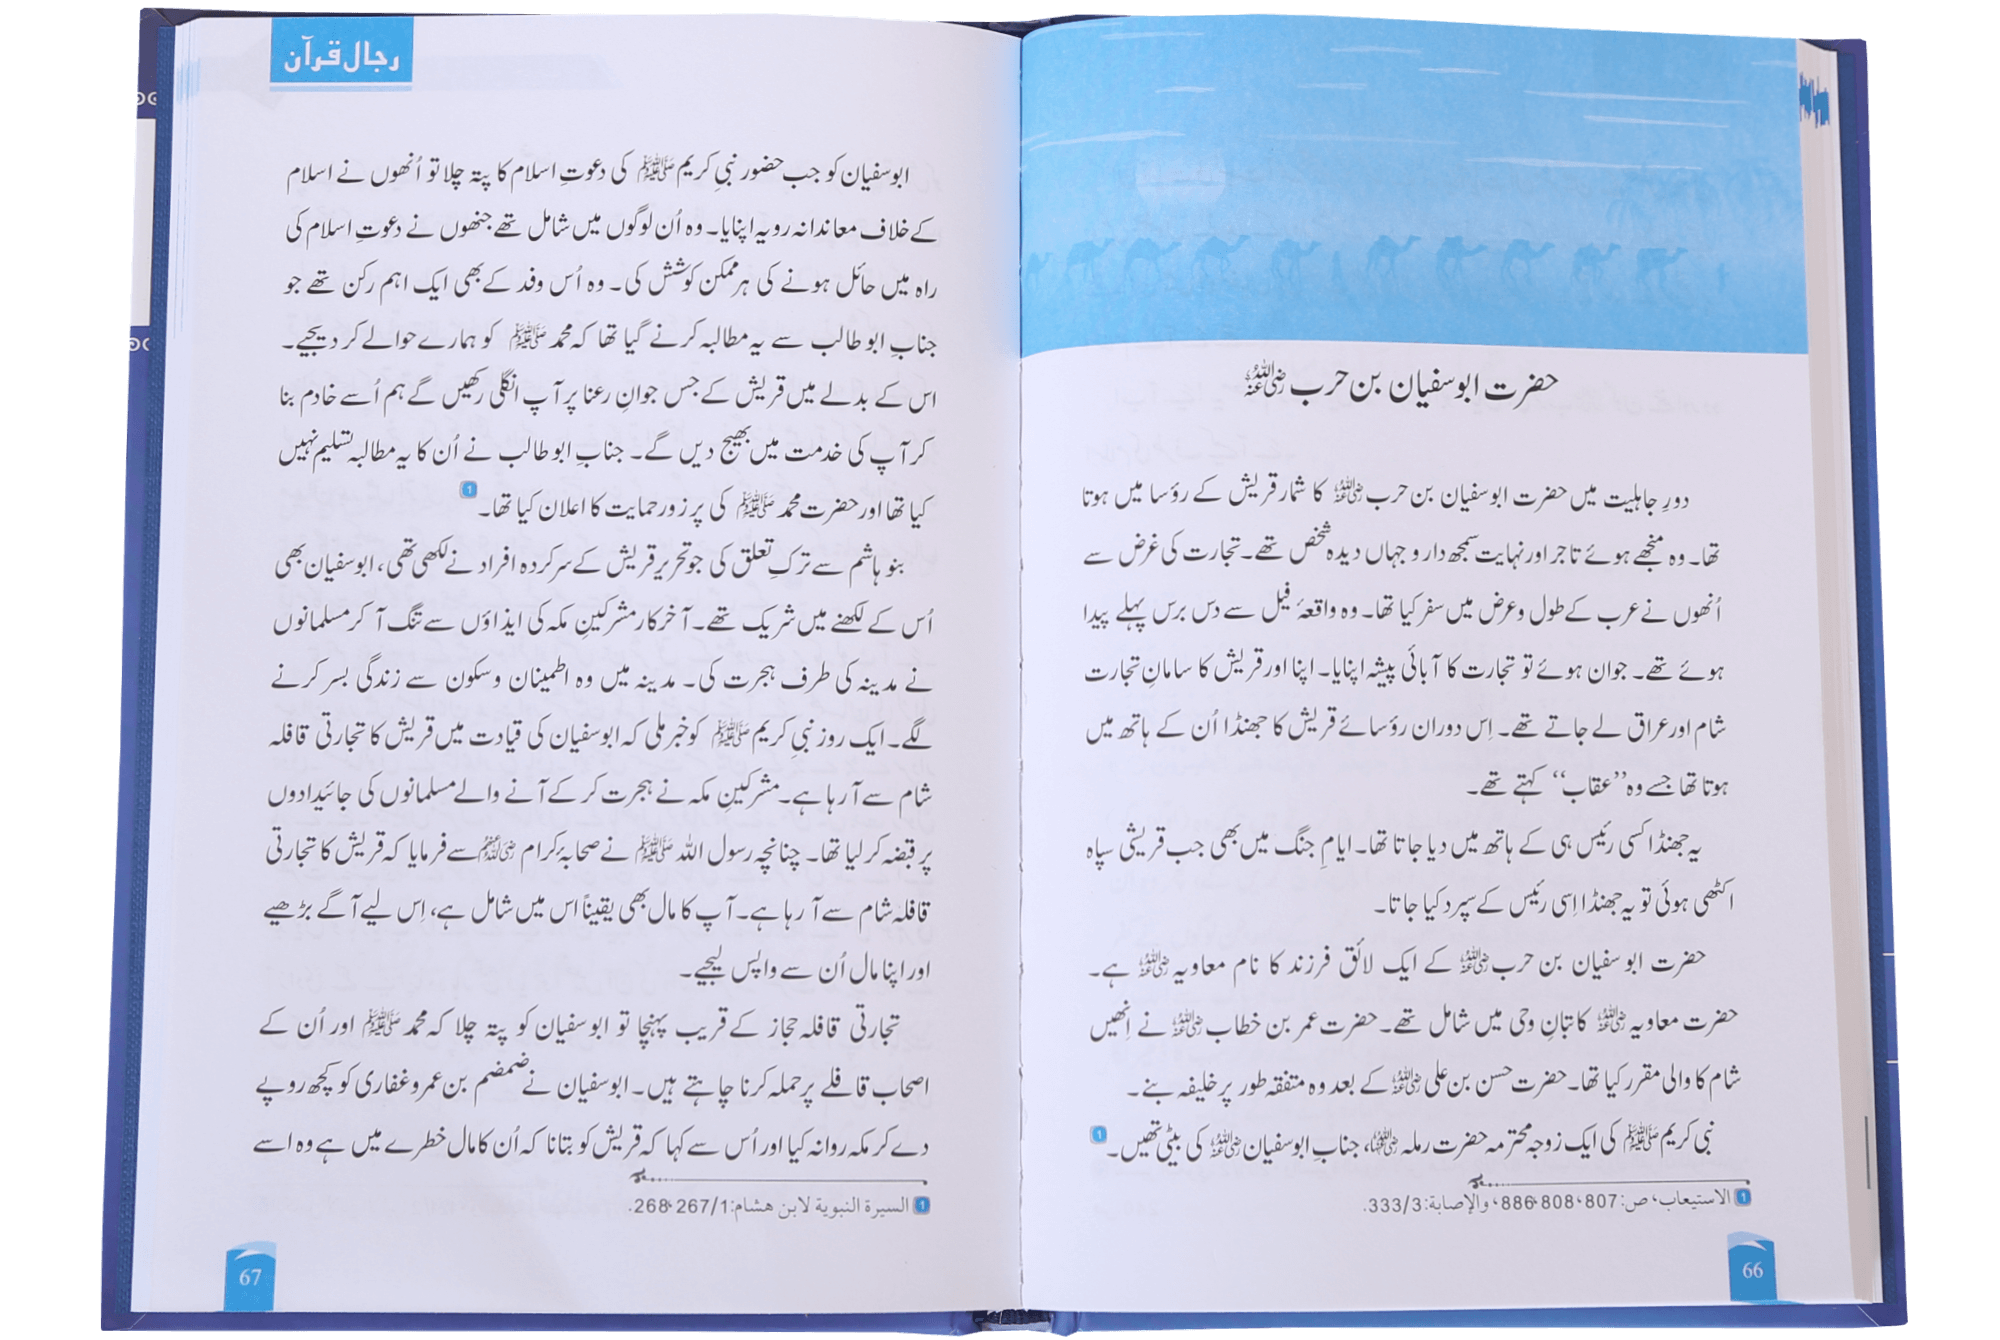 حضرت ابوسفیان بن حرب رضی اللہ عنہ
دورِ جاہلیت میں حضرت ابوسفیان بن حرب رضی اللہ عنہ کا شمار قریش کے رؤسا میں ہوتا
تھا۔ وہ منجھے ہوئے تاجر اور نہایت سمجھ دار و جہاں دیدہ شخص تھے۔ تجارت کی غرض سے
اُنھوں نے عرب کے طول و عرض میں سفر کیا تھا۔ وہ واقعۂ فیل سے دس برس پہلے پیدا
ہوئے تھے۔ جوان ہوئے تو تجارت کا آبائی پیشہ اپنایا۔ اپنا اور قریش کا سامانِ تجارت
شام اور عراق لے جاتے تھے۔ اِس دوران رؤسائے قریش کا جھنڈا اُن کے ہاتھ میں
ہوتا تھا جسے وہ ’’عقاب‘‘ کہتے تھے۔
یہ جھنڈا کسی رئیس ہی کے ہاتھ میں دیا جاتا تھا۔ ایامِ جنگ میں بھی جب قریشی سپاہ
اکٹھی ہوئی تو یہ جھنڈا اِسی رئیس کے سپرد کیا جاتا۔
حضرت ابوسفیان بن حرب رضی اللہ عنہ کے ایک لائق فرزند کا نام معاویہ رضی اللہ عنہ ہے۔
حضرت معاویہ رضی اللہ عنہ کاتبانِ وحی میں شامل تھے۔ حضرت عمر بن خطاب رضی اللہ عنہ نے اِنھیں
شام کا والی مقرر کیا تھا۔ حضرت حسن بن علی رضی اللہ عنہ کے بعد وہ متفقہ طور پر خلیفہ بنے۔
نبی کریم ﷺ کی ایک زوجہ محترمہ حضرت رملہ رضی اللہ عنہا، جنابِ ابوسفیان رضی اللہ عنہ کی بیٹی تھیں۔ 1
1 الاستیعاب، ص: 807، 808، 886، والإصابة: 333/3.
66
رجال قرآن
ابوسفیان کو جب حضور نبیِ کریم ﷺ کی دعوتِ اسلام کا پتہ چلا تو اُنھوں نے اسلام
کے خلاف معاندانہ رویہ اپنایا۔ وہ اُن لوگوں میں شامل تھے جنھوں نے دعوتِ اسلام کی
راہ میں حائل ہونے کی ہر ممکن کوشش کی۔ وہ اُس وفد کے بھی ایک اہم رکن تھے جو
جنابِ ابوطالب سے یہ مطالبہ کرنے گیا تھا کہ محمد ﷺ کو ہمارے حوالے کر دیجیے۔
اس کے بدلے میں قریش کے جس جوانِ رعنا پر آپ انگلی رکھیں گے ہم اُسے خادم بنا
کر آپ کی خدمت میں بھیج دیں گے۔ جنابِ ابوطالب نے اُن کا یہ مطالبہ تسلیم نہیں
کیا تھا اور حضرت محمد ﷺ کی پرزور حمایت کا اعلان کیا تھا۔ 1
بنو ہاشم سے ترکِ تعلق کی جو تحریر قریش کے سرکردہ افراد نے لکھی تھی، ابوسفیان بھی
اُس کے لکھنے میں شریک تھے۔ آخر کار مشرکینِ مکہ کی ایذاؤں سے تنگ آ کر مسلمانوں
نے مدینہ کی طرف ہجرت کی۔ مدینہ میں وہ اطمینان و سکون سے زندگی بسر کرنے
لگے۔ ایک روز نبیِ کریم ﷺ کو خبر ملی کہ ابوسفیان کی قیادت میں قریش کا تجارتی قافلہ
شام سے آ رہا ہے۔ مشرکینِ مکہ نے ہجرت کر کے آنے والے مسلمانوں کی جائیدادوں
پر قبضہ کر لیا تھا۔ چنانچہ رسول اللہ ﷺ نے صحابۂ کرام رضی اللہ عنہم سے فرمایا کہ قریش کا تجارتی
قافلہ شام سے آ رہا ہے۔ آپ کا مال بھی یقیناً اس میں شامل ہے، اِس لیے آگے بڑھیے
اور اپنا مال اُن سے واپس لیجیے۔
تجارتی قافلہ حجاز کے قریب پہنچا تو ابوسفیان کو پتہ چلا کہ محمد ﷺ اور اُن کے
اصحاب قافلے پر حملہ کرنا چاہتے ہیں۔ ابوسفیان نے ضمضم بن عمرو غفاری کو کچھ روپے
دے کر مکہ روانہ کیا اور اُس سے کہا کہ قریش کو بتانا کہ اُن کا مال خطرے میں ہے وہ اسے
1 السیرة النبویة لابن هشام: 267/1، 268.
67